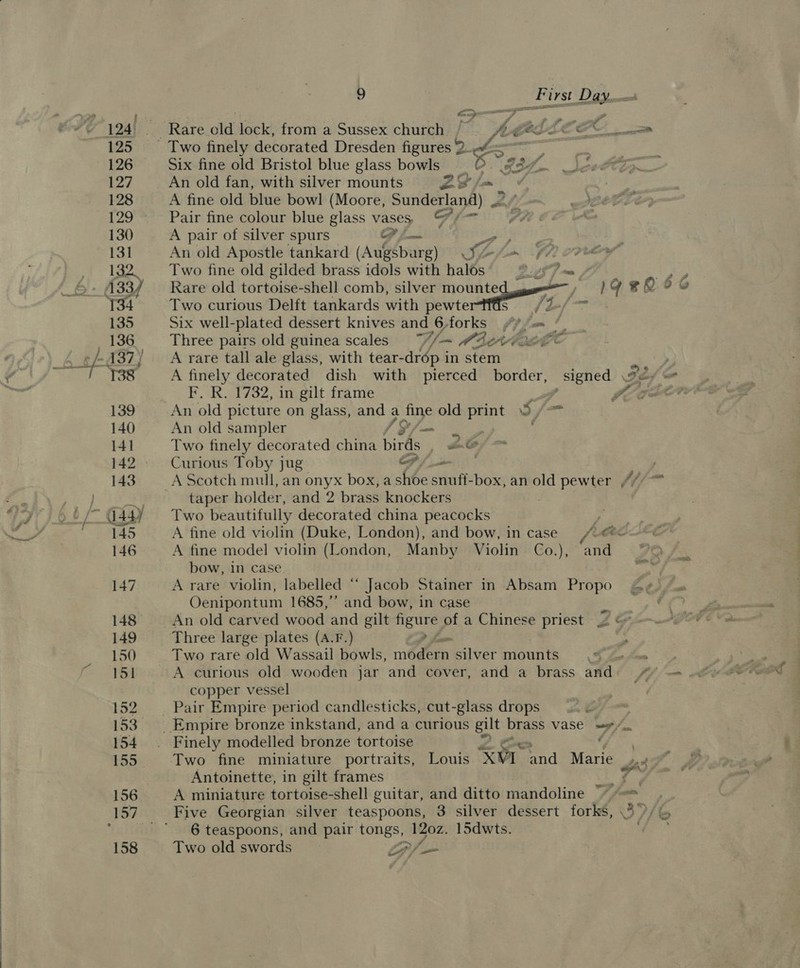 9 First Day
124 Rare old lock, from a Sussex church
125 Two finely decorated Dresden figures
126 Six fine old Bristol blue glass bowls
127 An old fan, with silver mounts
128 A fine old blue bowl (Moore, Sunderland)
129 Pair fine colour blue glass vases
130 A pair of silver spurs
131 An old Apostle tankard (Augsburg)
132 Two fine old gilded brass idols with halos
133 Rare old tortoise-shell comb, silver mounted
134 Two curious Delft tankards with pewter lids
135 Six well-plated dessert knives and 6 forks
136 Three pairs old guinea scales
137 A rare tall ale glass, with tear-drop in stem
138 A finely decorated dish with pierced border, signed
F. R. 1732, in gilt frame
139 An old picture on glass, and a fine old print
140 An old sampler
141 Two finely decorated china birds
142 Curious Toby jug
143 A Scotch mull, an onyx box, a shoe snuff-box, an old pewter
taper holder, and 2 brass knockers
144 Two beautifully decorated china peacocks
145 A fine old violin (Duke, London), and bow, in case
146 A fine model violin (London, Manby Violin Co.), and
bow, in case
147 A rare violin, labelled “ Jacob Stainer in Absam Propo
Oenipontum 1685,” and bow, in case
148 An old carved wood and gilt figure of a Chinese priest
149 Three large plates (A.F.)
150 Two rare old Wassail bowls, modern silver mounts
151 A curious old wooden jar and cover, and a brass and
copper vessel
152 Pair Empire period candlesticks, cut-glass drops
153 Empire bronze inkstand, and a curious gilt brass vase
154 Finely modelled bronze tortoise
155 Two fine miniature portraits, Louis XVI and Marie
Antoinette, in gilt frames
156 A miniature tortoise-shell guitar, and ditto mandoline
157 Five Georgian silver teaspoons, 3 silver dessert forks,
6 teaspoons, and pair tongs, 12oz. 15dwts.
158 Two old swords